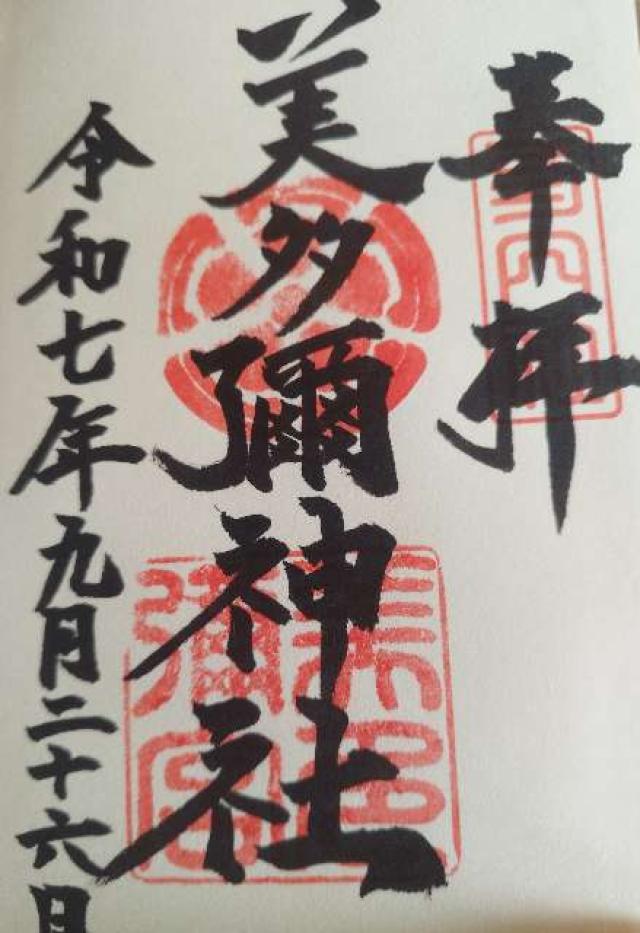 奉拝
美多彌神社
令和七年九月二十六日